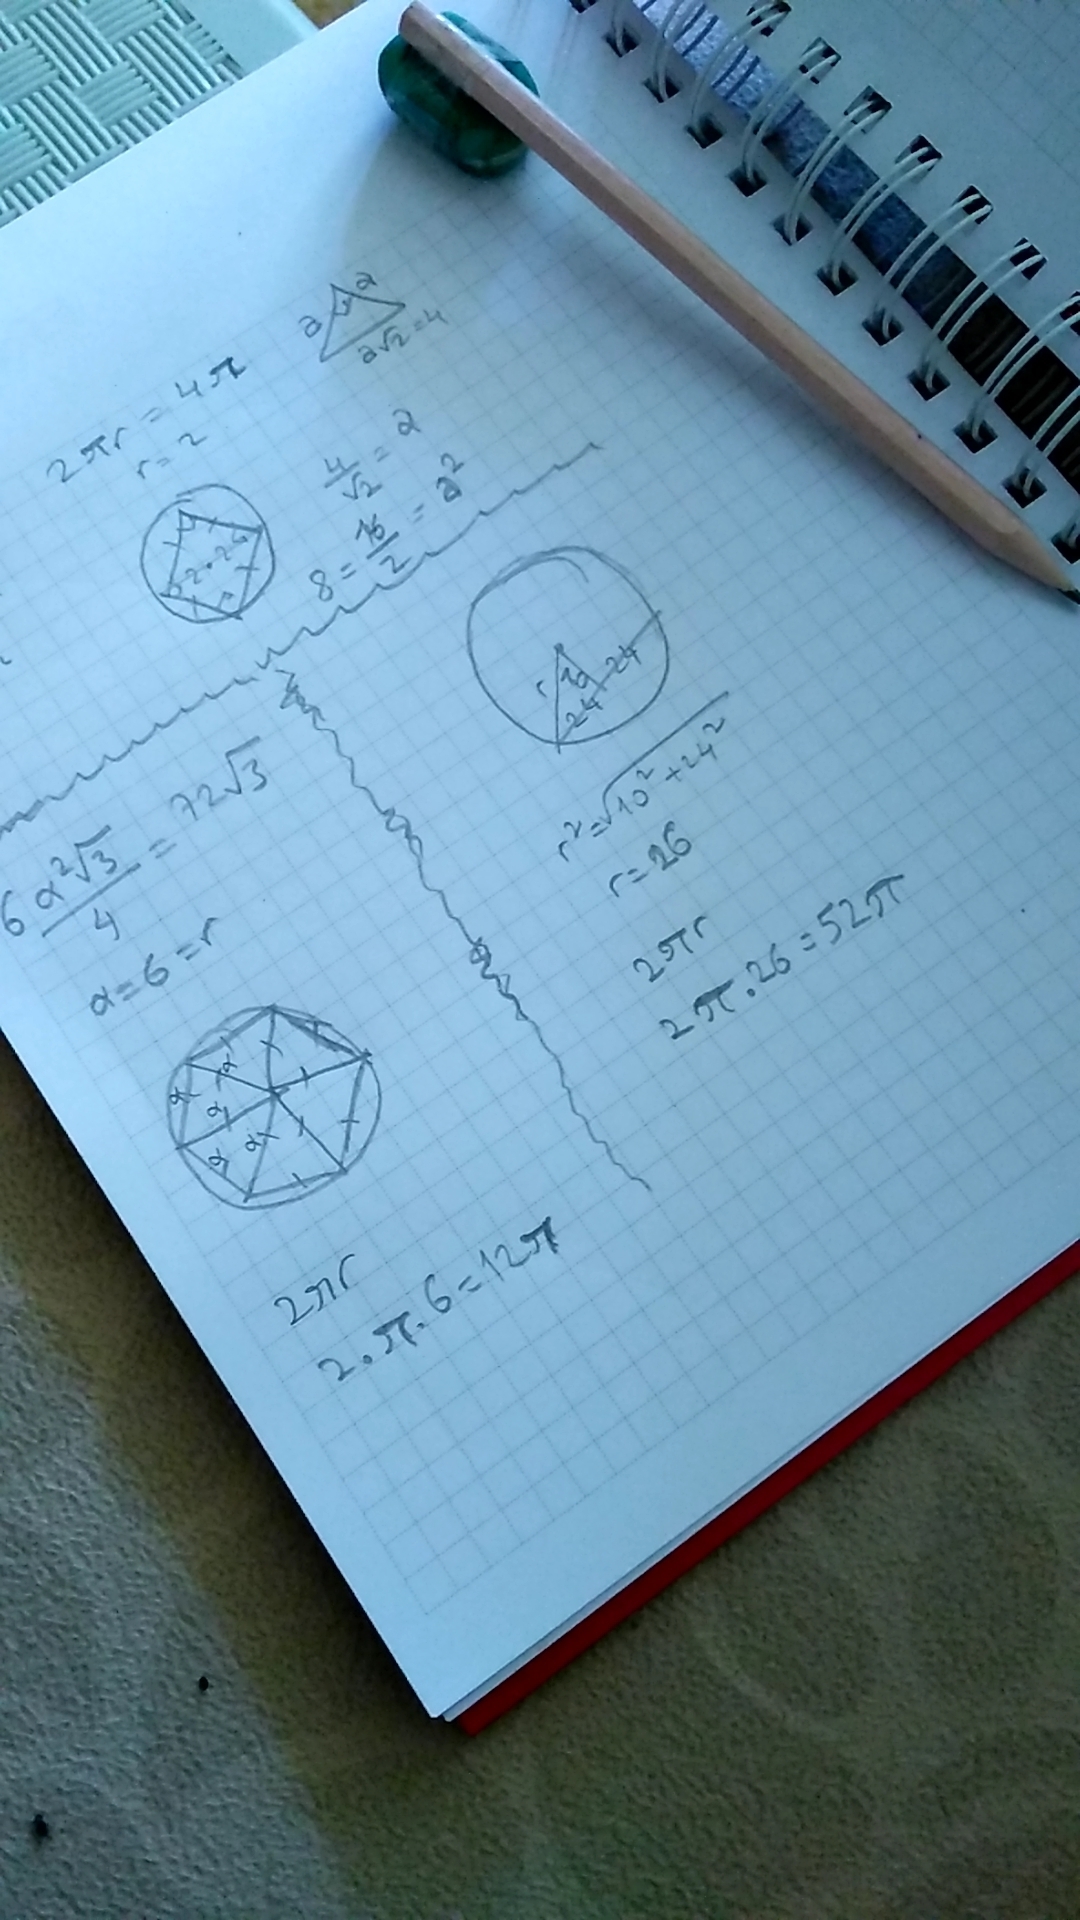 2πr = 4π
r = 2
a a
a√2 = 4
2·2=4
4/√2 = a
8 = 16/2 = a²
r 10 24 24
r² = √10² + 24²
r = 26
2πr
2π · 26 = 52π
6 a²√3/4 = 72√3
a = 6 = r
a a a a a a
2πr
2 · π · 6 = 12π